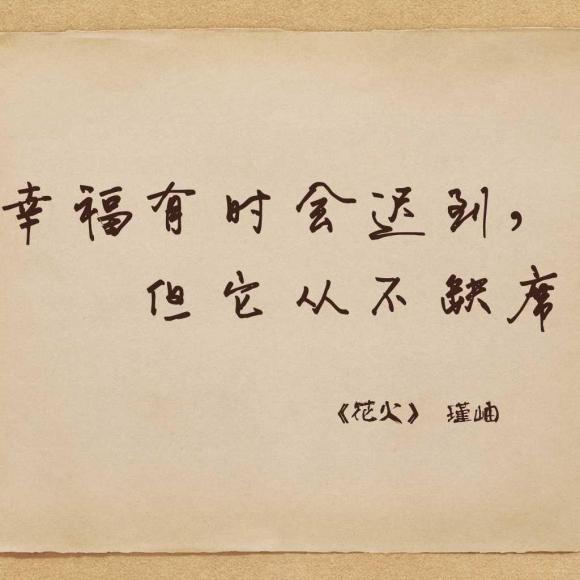 幸福有时会迟到，
但它从不缺席
《花火》 瑾岫